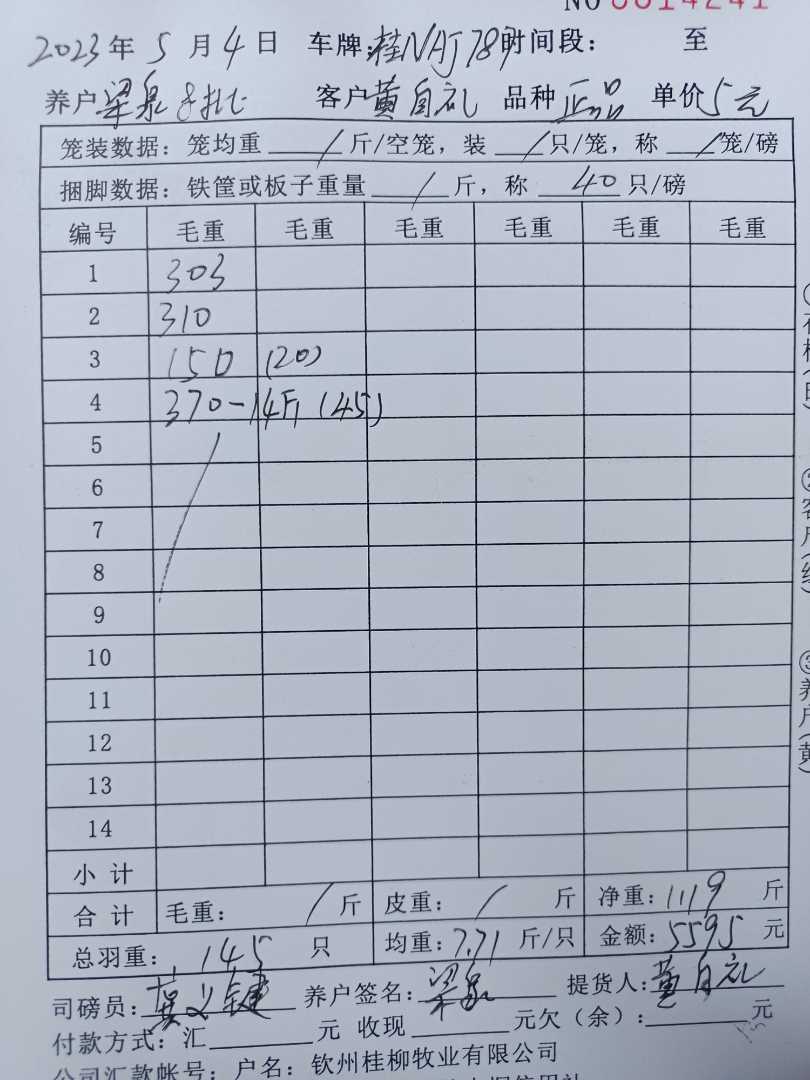 NO 0014241
2023年5月4日 车牌:桂NAJ789时间段: 至
养户梁泉 客户黄自礼 品种正品 单价5元
笼装数据: 笼均重 / 斤/空笼, 装 / 只/笼, 称 / 笼/磅
捆脚数据: 铁筐或板子重量 / 斤, 称 40 只/磅
编号 毛重 毛重 毛重 毛重 毛重 毛重
1 303
2 310
3 150 (20)
4 370-14斤 (45)
5
6
7
8
9
10
11
12
13
14
小计
合计 毛重: / 斤 皮重: / 斤 净重: 1119 斤
总羽重: 145 只 均重: 7.71 斤/只 金额: 5595 元
司磅员: 养户签名: 梁泉 提货人: 黄自礼
付款方式: 汇 元 收现 元欠(余): 元
公司汇款帐号: 户名: 钦州桂柳牧业有限公司
②客户(红)
③养户(黄)